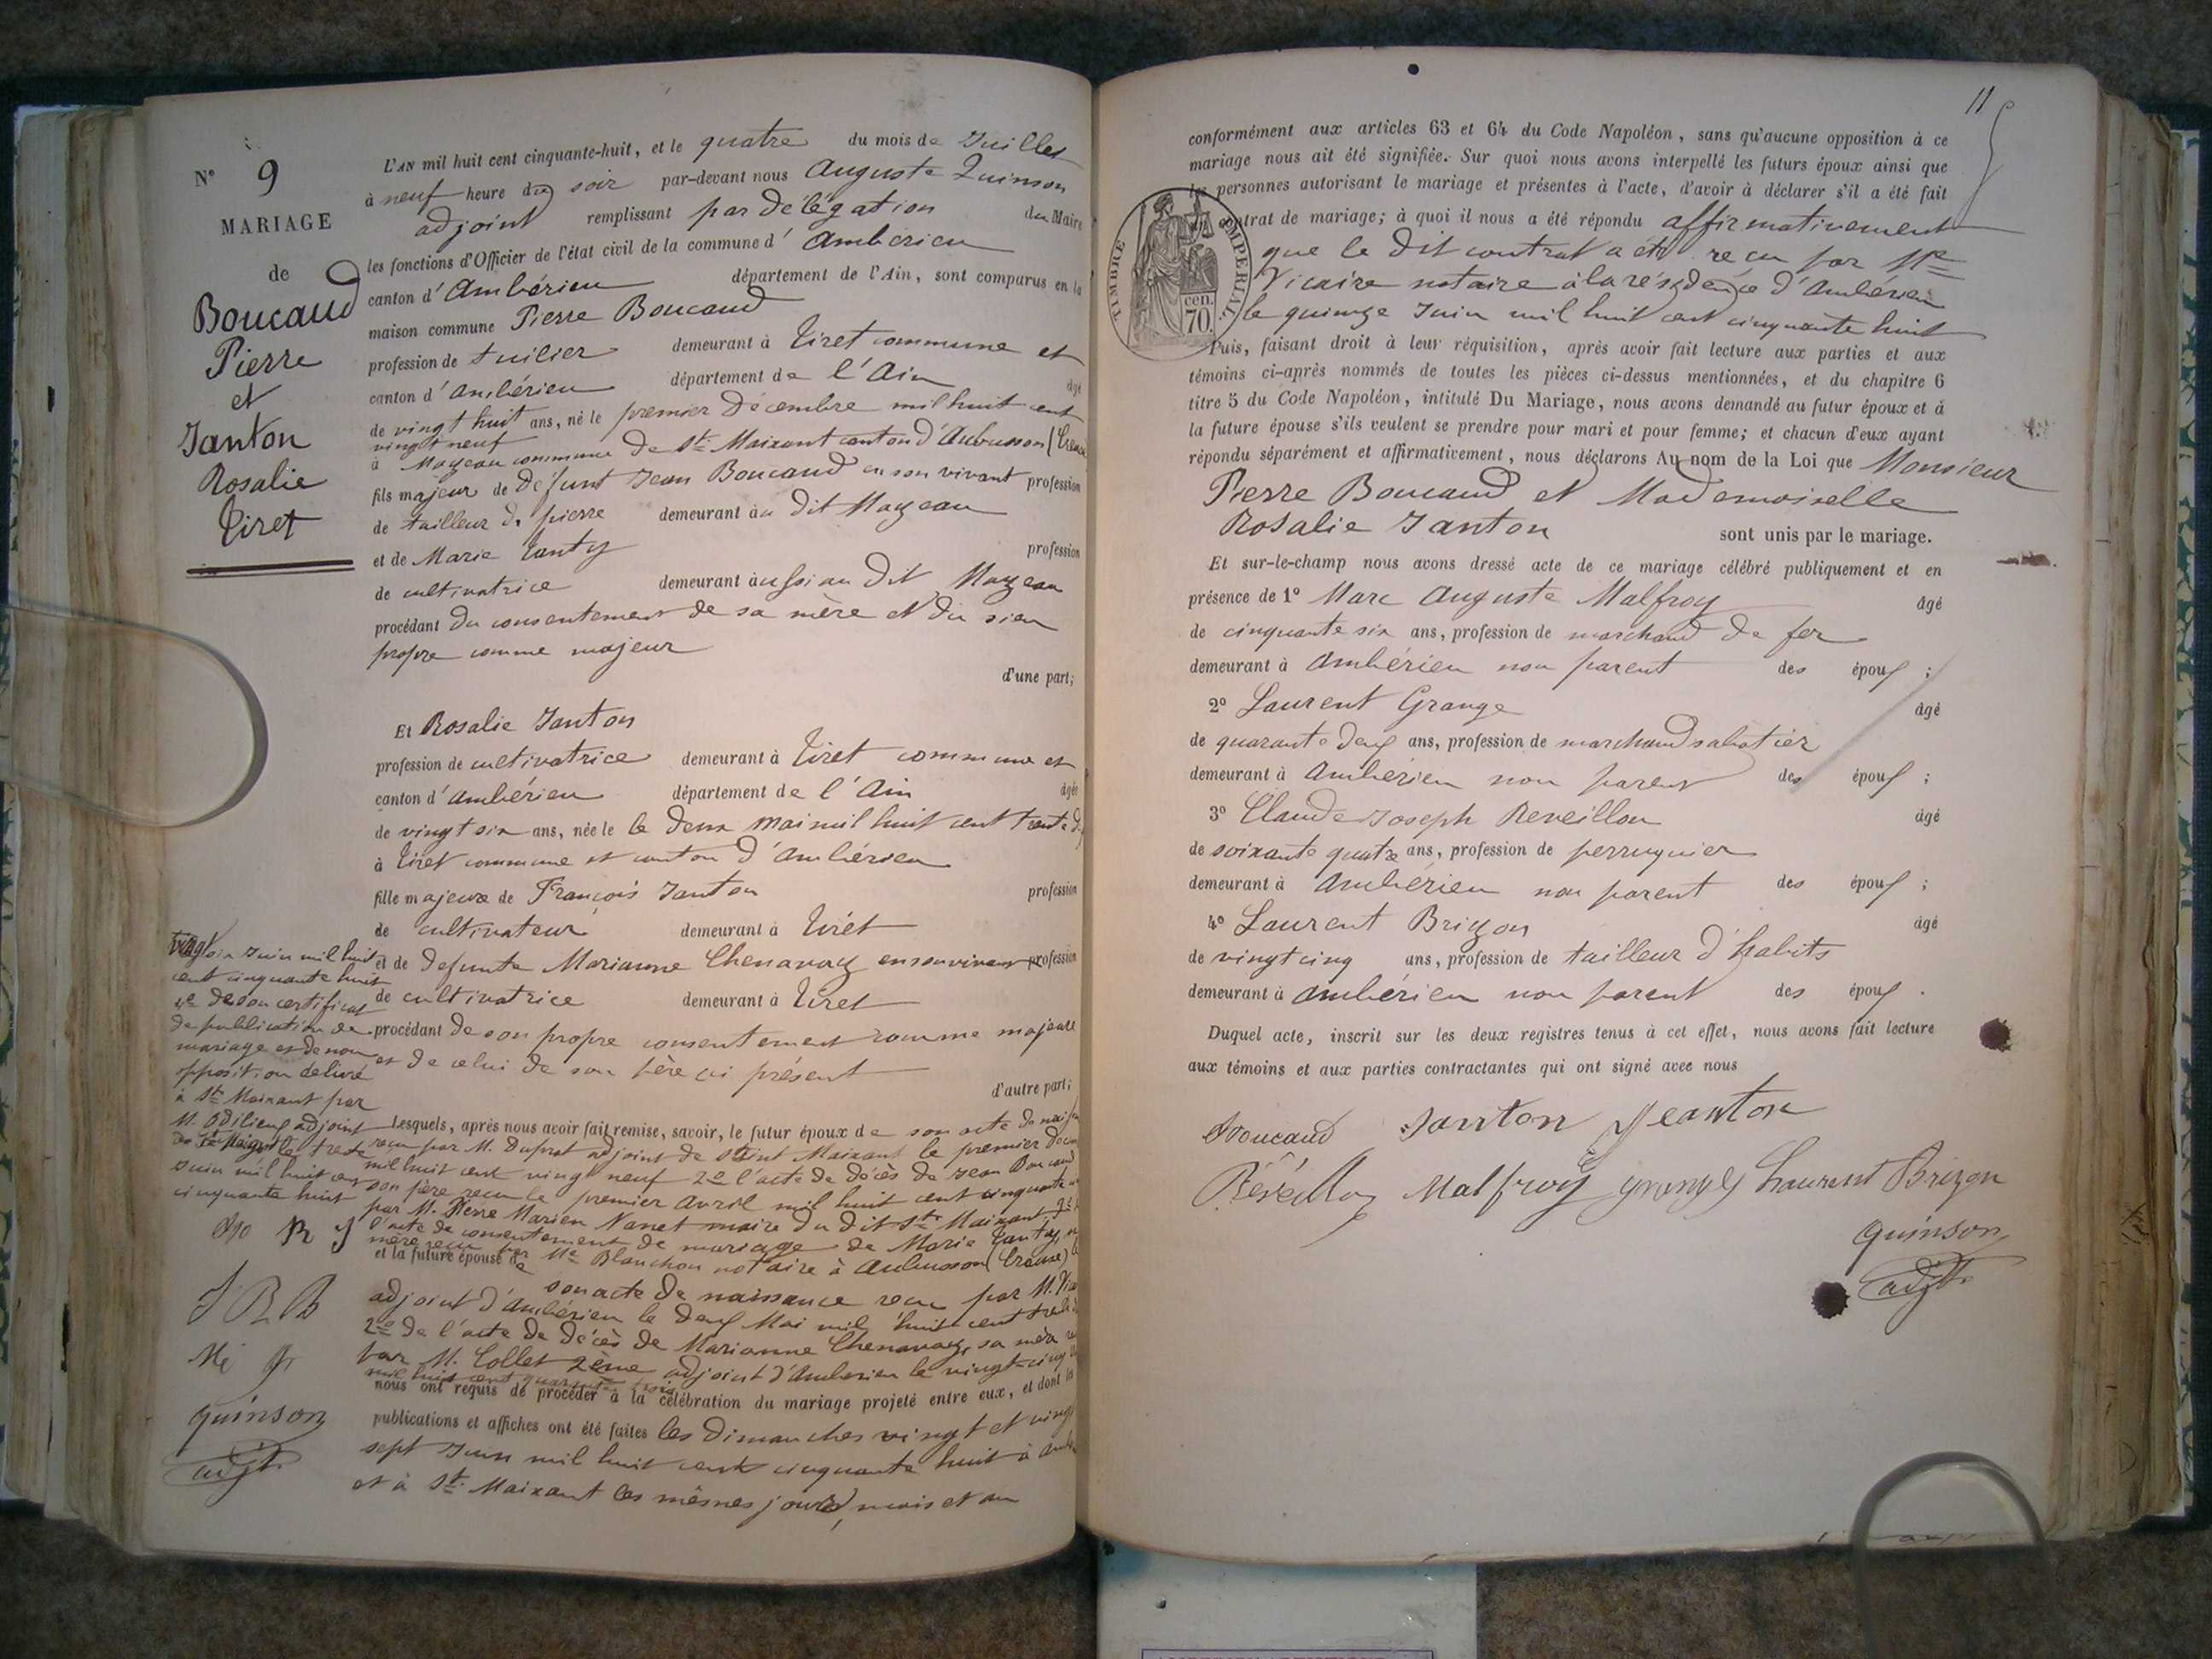 N° 9
MARIAGE
de
Boucaud
Pierre
et
Janton
Rosalie
Tiret
L'AN mil huit cent cinquante-huit, et le quatre du mois de Juillet
à neuf heure du soir par-devant nous Auguste Quinson
adjoint remplissant par délégation du Maire
les fonctions d'Officier de l'état civil de la commune d' Ambérieu
canton d' Ambérieu département de l'Ain, sont comparus en la
maison commune Pierre Boucaud
profession de tuilier demeurant à Tiret commune et
canton d' Ambérieu département de l'Ain âgé
de vingt huit ans, né le premier Décembre mil huit cent
vingt neuf
à Mazeau commune de St Maixant canton d'Aubusson (Creuse
fils majeur de défunt Jean Boucaud en son vivant profession
de tailleur de pierre demeurant au dit Mazeau
et de Marie Tanty profession
de cultivatrice demeurant aussi au dit Mazeau
procédant du consentement de sa mère et du sien
propre comme majeur
d'une part;
Et Rosalie Janton
profession de cultivatrice demeurant à Tiret commune et
canton d' Ambérieu département de l'Ain âgée
de vingt six ans, née le le deux mai mil huit cent trente
à Tiret commune et canton d'Ambérieu
fille majeure de François Janton profession
de cultivateur demeurant à Tirét
et de defunte Marianne Chenavaz en son vivant profession
de cultivatrice demeurant à Tiret
procédant de son propre consentement comme majeure
et de celui de son père ici présent
d'autre part;
Lesquels, après nous avoir fait remise, savoir, le futur époux de son acte de
reçu par M. Duprat adjoint de Saint Maixant le premier
mil huit cent vingt neuf 2° l'acte de décès de Jean Boucaud
son père reçu le premier avril mil huit cent cinquante
par M. Pierre Marien Nanet maire du dit St Maixant 3°
l'acte de consentement de mariage de Marie Tanty
mère reçu par Me Blanchon notaire à Aubusson (Creuse)
et la future épouse de
son acte de naissance reçu par M.
adjoint d'Ambérieu le deux Mai mil huit cent
2° de l'acte de décès de Marianne Chenavaz, sa mère
par M. Collet 2ème adjoint d'Ambérieu le vingt-cinq
mil huit cent quarante trois
nous ont requis de procéder à la célébration du mariage projeté entre eux, et dont les
publications et affiches ont été faites les dimanches vingt et vingt
sept Juin mil huit cent cinquante huit à
et à St Maixant les mêmes jours, mois et an
vingt six Juin mil huit
cent cinquante huit
4° de son certificat
de publication de
mariage et de non
opposition délivré
à St Maixant par
M. Odilieux adjoint
Juin mil huit cent
cinquante huit
quinson
adjt.
11
conformément aux articles 63 et 64 du Code Napoléon, sans qu'aucune opposition à ce
mariage nous ait été signifiée. Sur quoi nous avons interpellé les futurs époux ainsi que
les personnes autorisant le mariage et présentes à l'acte, d'avoir à déclarer s'il a été fait
contrat de mariage; à quoi il nous a été répondu affirmativement
que le dit contrat a été reçu par Me
Vicaire notaire à la résidence d'Ambérieu
le quinze Juin mil huit cent cinquante huit
TIMBRE IMPERIAL
70 cen.
Puis, faisant droit à leur réquisition, après avoir fait lecture aux parties et aux
témoins ci-après nommés de toutes les pièces ci-dessus mentionnées, et du chapitre 6
titre 5 du Code Napoléon, intitulé Du Mariage, nous avons demandé au futur époux et à
la future épouse s'ils veulent se prendre pour mari et pour femme; et chacun d'eux ayant
répondu séparément et affirmativement, nous déclarons Au nom de la Loi que Monsieur
Pierre Boucaud et Mademoiselle
Rosalie Janton sont unis par le mariage.
Et sur-le-champ nous avons dressé acte de ce mariage célébré publiquement et en
présence de 1° Marc Auguste Malfroy âgé
de cinquante six ans, profession de marchand de fer
demeurant à Ambérieu non parent des époux ;
2° Laurent Grange âgé
de quarante deux ans, profession de marchand sabotier
demeurant à Ambérieu non parent des époux ;
3° Claude Joseph Reveillon âgé
de soixante quatre ans, profession de perruquier
demeurant à Ambérieu non parent des époux ;
4° Laurent Brizon âgé
de vingt cinq ans, profession de tailleur d'habits
demeurant à Ambérieu non parent des époux .
Duquel acte, inscrit sur les deux registres tenus à cet effet, nous avons fait lecture
aux témoins et aux parties contractantes qui ont signé avec nous
Boucaud Janton Jeanton
Réveillon Malfroy grange Laurent Brizon
quinson
adjt.